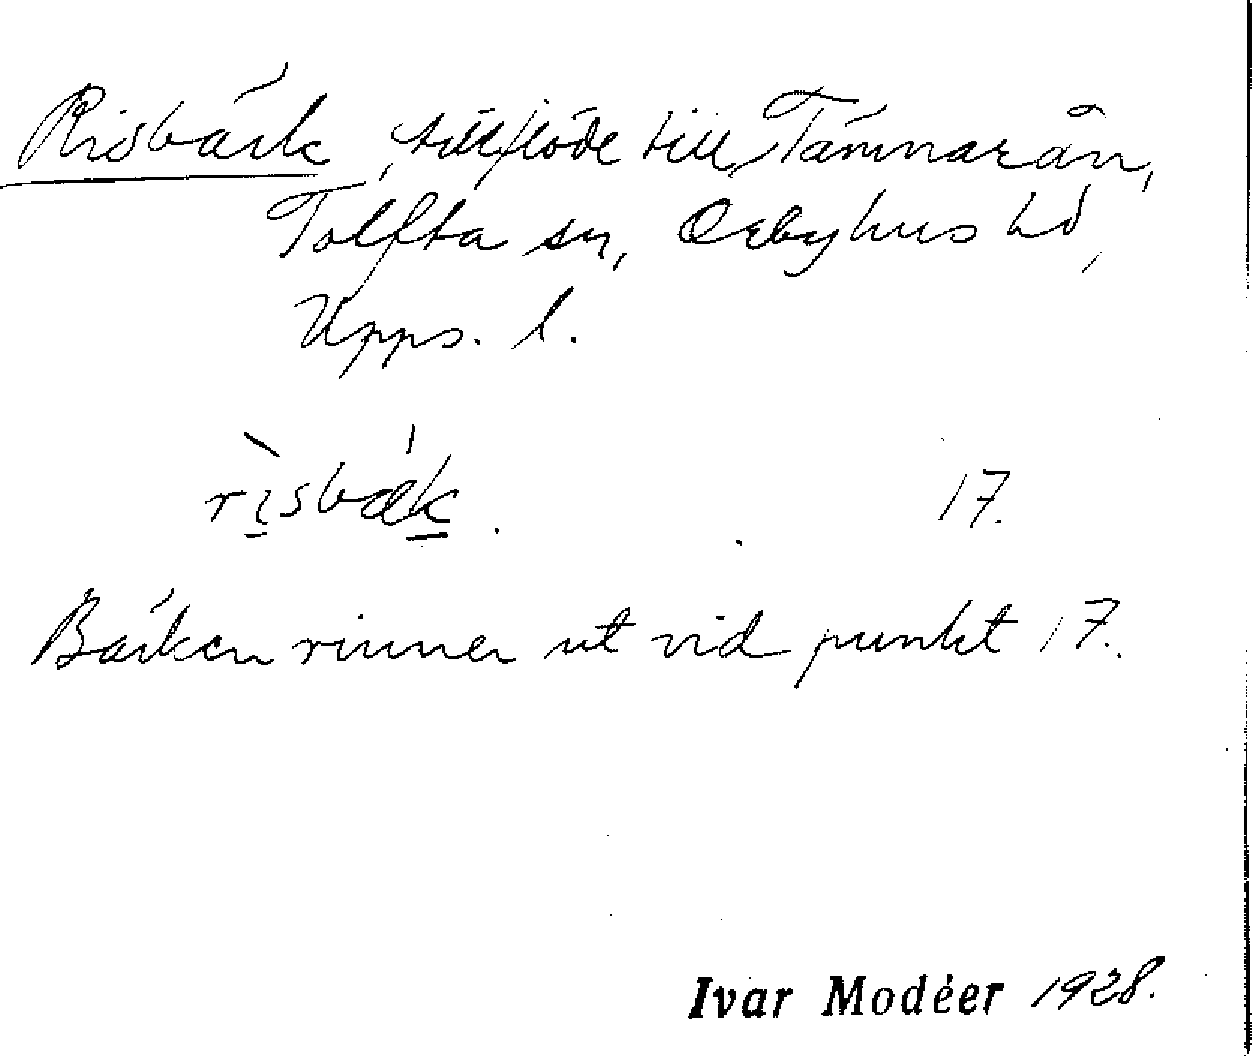 Risbäck, tillflöde till Tämnarån,
Tolfta sn, Örbyhus hd,
Upps. l.
rìsbæ̀k. 17.
Bäcken rinner ut vid punkt 17.
Ivar Modéer 1928.